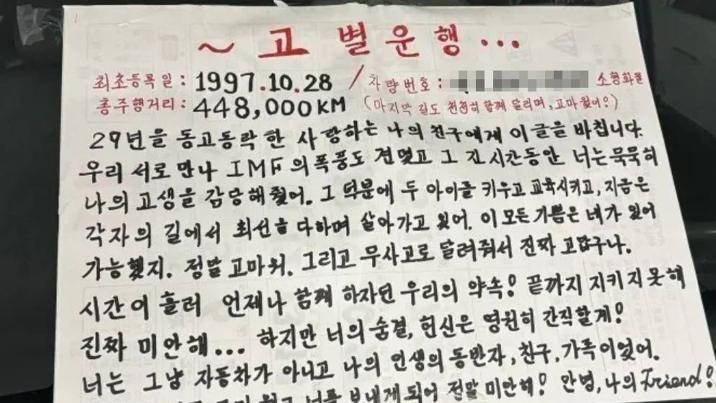 ~ 고별운행...
최초등록일 : 1997.10.28 / 차량번호 : 소형화물
총주행거리 : 448,000KM (마지막 길도 천천히 함께 달리며, 고마웠어?)
29년을 동고동락 한 사랑하는 나의 친구에게 이 글을 바칩니다.
우리 서로 만나 IMF의 폭풍도 견뎠고 그 긴시간동안 너는 묵묵히
나의 고생을 감당해줬어. 그 덕분에 두 아이를 키우고 교육시키고, 지금은
각자의 길에서 최선을 다하며 살아가고 있어. 이 모든 기쁨은 네가 있어
가능했지. 정말 고마워. 그리고 무사고로 달려줘서 진짜 고맙구나.
시간이 흘러 언제나 함께 하자던 우리의 약속! 끝까지 지키지 못해
진짜 미안해... 하지만 너의 숨결, 헌신은 영원히 간직할게!
너는 그냥 자동차가 아니고 나의 인생의 동반자, 친구, 가족이었어.
너를 보내게 되어 정말 미안해! 안녕, 나의 Friend!